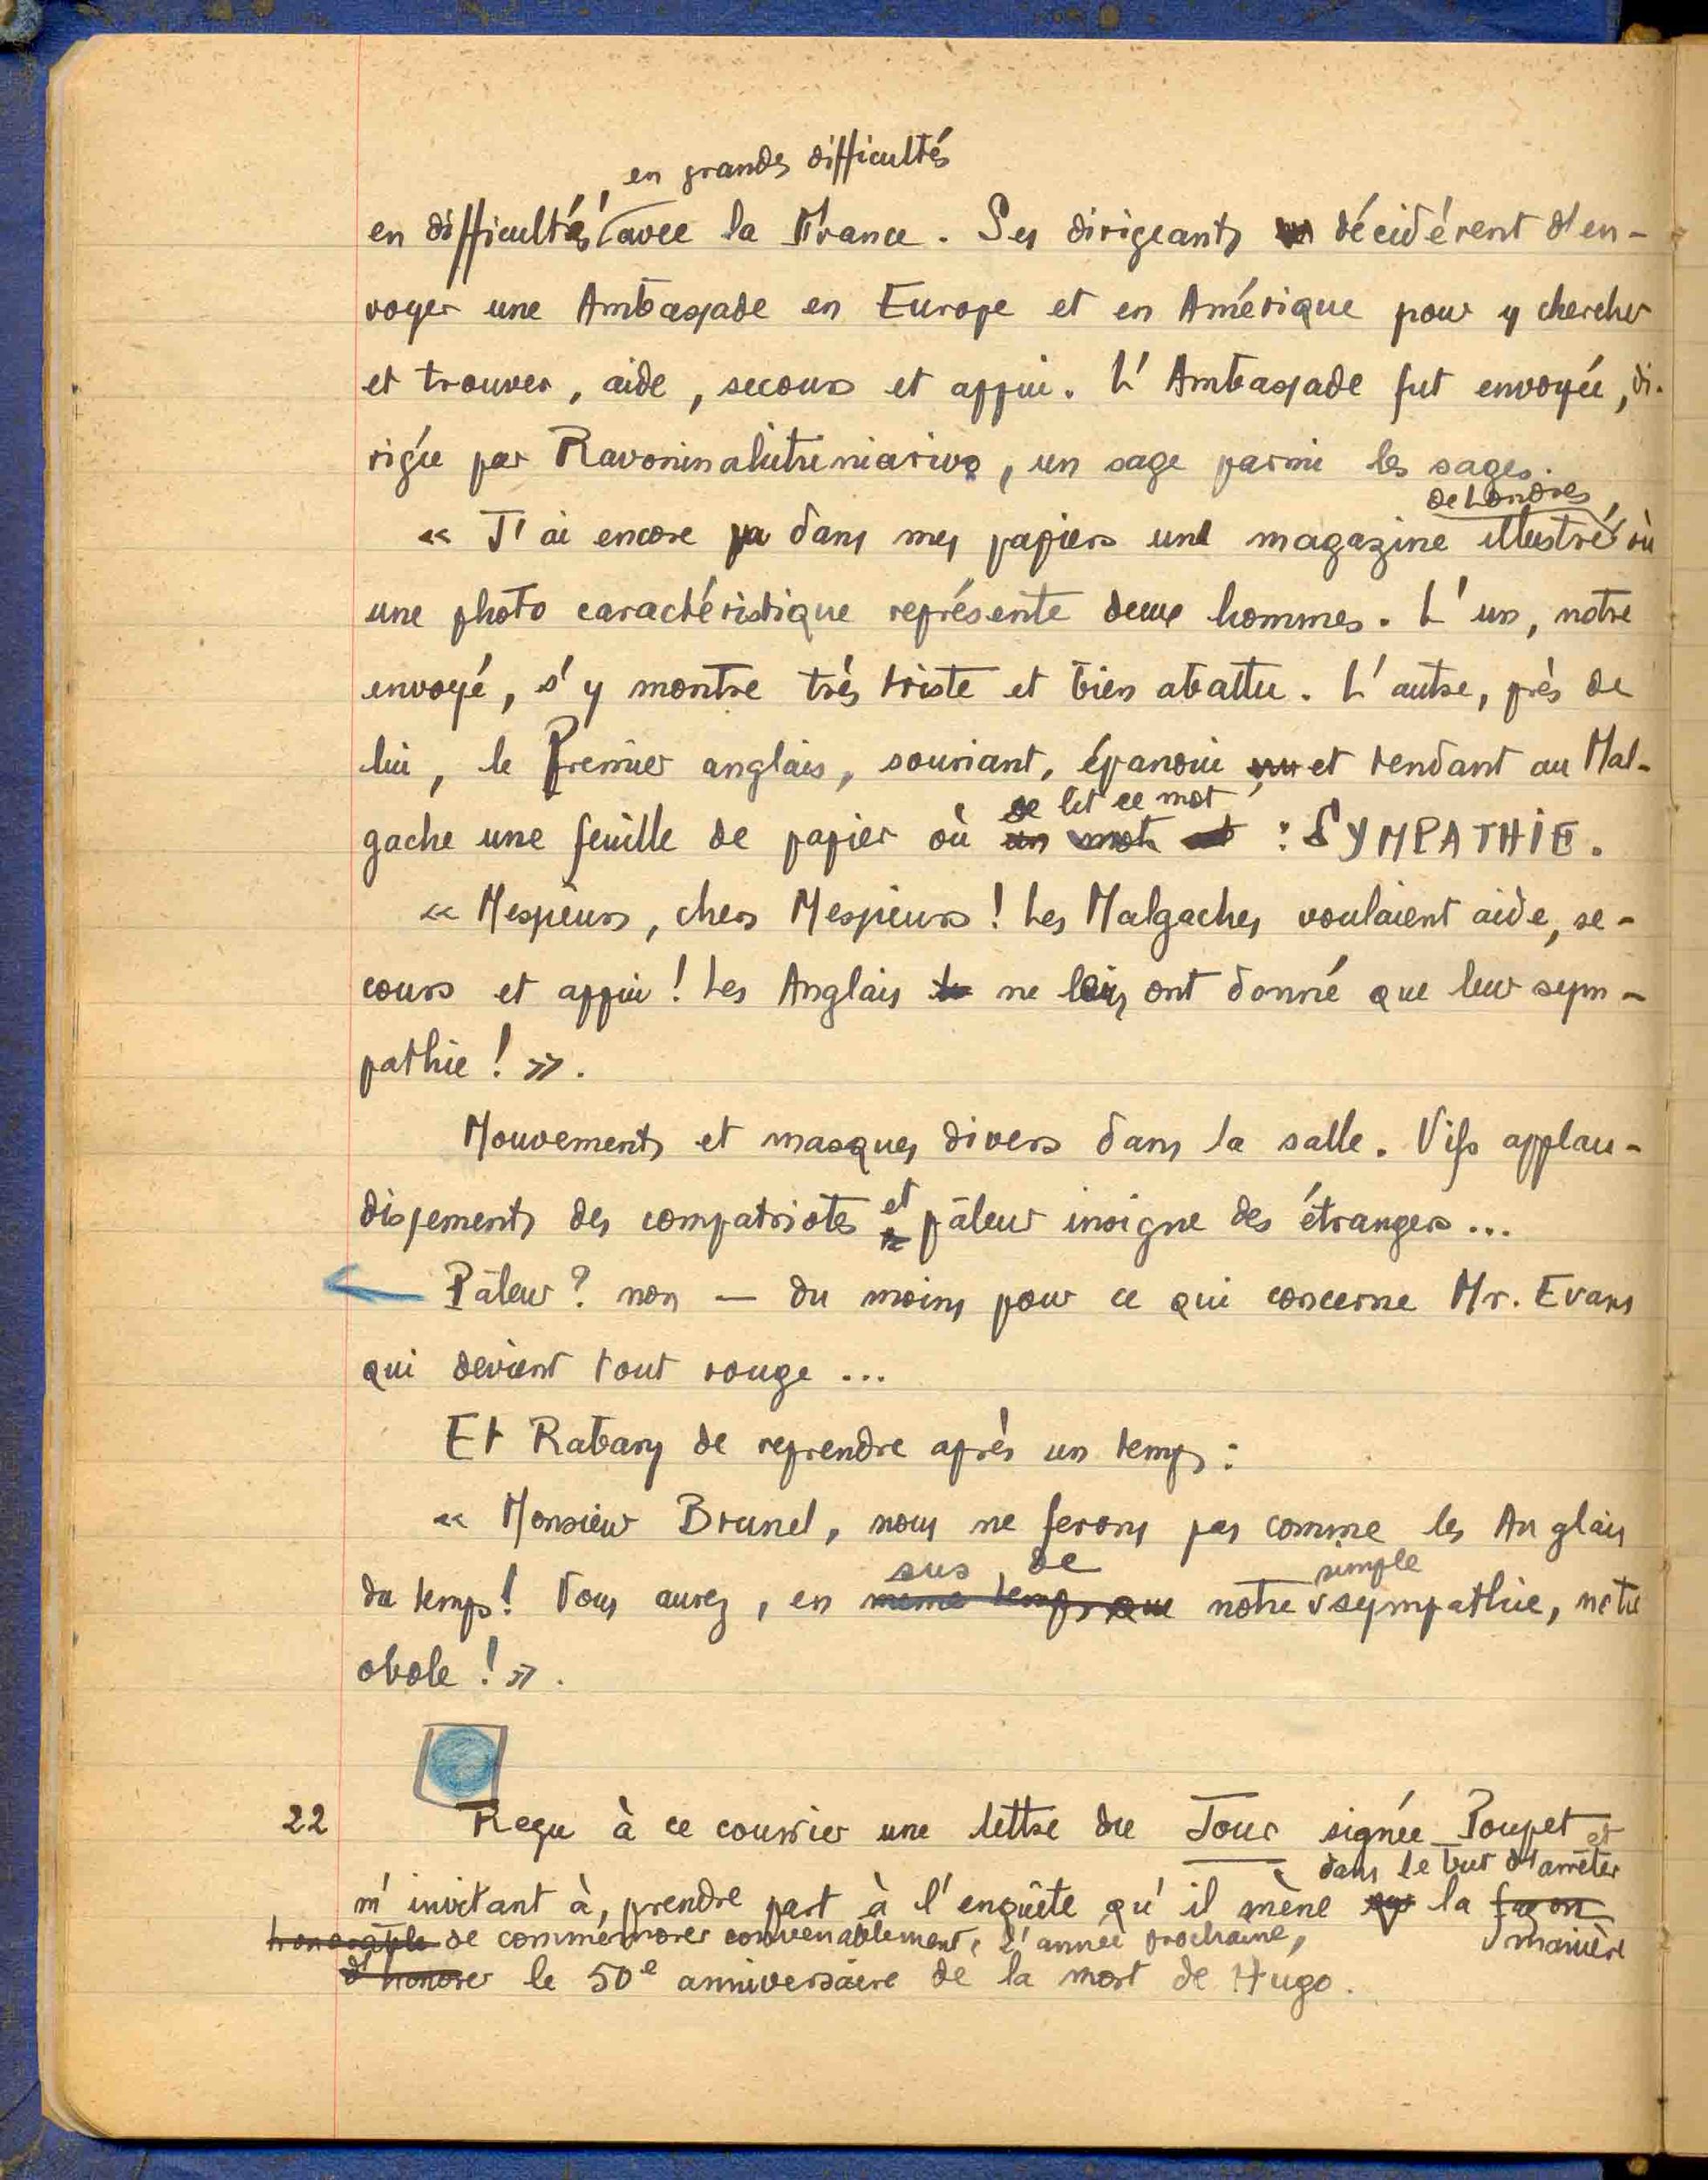 en grandes difficultés
en difficultés, avec la France. Ses dirigeants décidèrent d'en-
voyer une Ambassade en Europe et en Amérique pour y chercher
et trouver, aide, secours et appui. L'Ambassade fut envoyée, di-
rigée par Ravoninahitriniarivo, un sage parmi les sages.
de Londres,
« J'ai encore dans mes papiers un magazine illustré où
une photo caractéristique représente deux hommes. L'un, notre
envoyé, s'y montre très triste et bien abattu. L'autre, près de
lui, le Premier anglais, souriant, épanoui, et tendant au Mal-
se lit ce mot
gache une feuille de papier où un mot est : SYMPATHIE.
« Messieurs, chers Messieurs ! Les Malgaches voulaient aide, se-
cours et appui ! Les Anglais ne leur ont donné que leur sym-
pathie ! ».
Mouvements et masques divers dans la salle. Vifs applau-
dissements des compatriotes et pâleur insigne des étrangers ...
Pâleur ? non — du moins pour ce qui concerne Mr. Evans
qui devient tout rouge ...
Et Rabary de reprendre après un temps :
« Monsieur Brunel, nous ne ferons pas comme les Anglais
sus de simple
du temps ! Vous aurez, en même temps que notre sympathie, notre
obole ! ».
22 Reçu à ce courrier une lettre du Jour signée Poupet et
dans le but d'arrêter
m'invitant à prendre part à l'enquête qu'il mène la façon
manière
honorable de commémorer convenablement, l'année prochaine,
d'honorer le 50e anniversaire de la mort de Hugo.